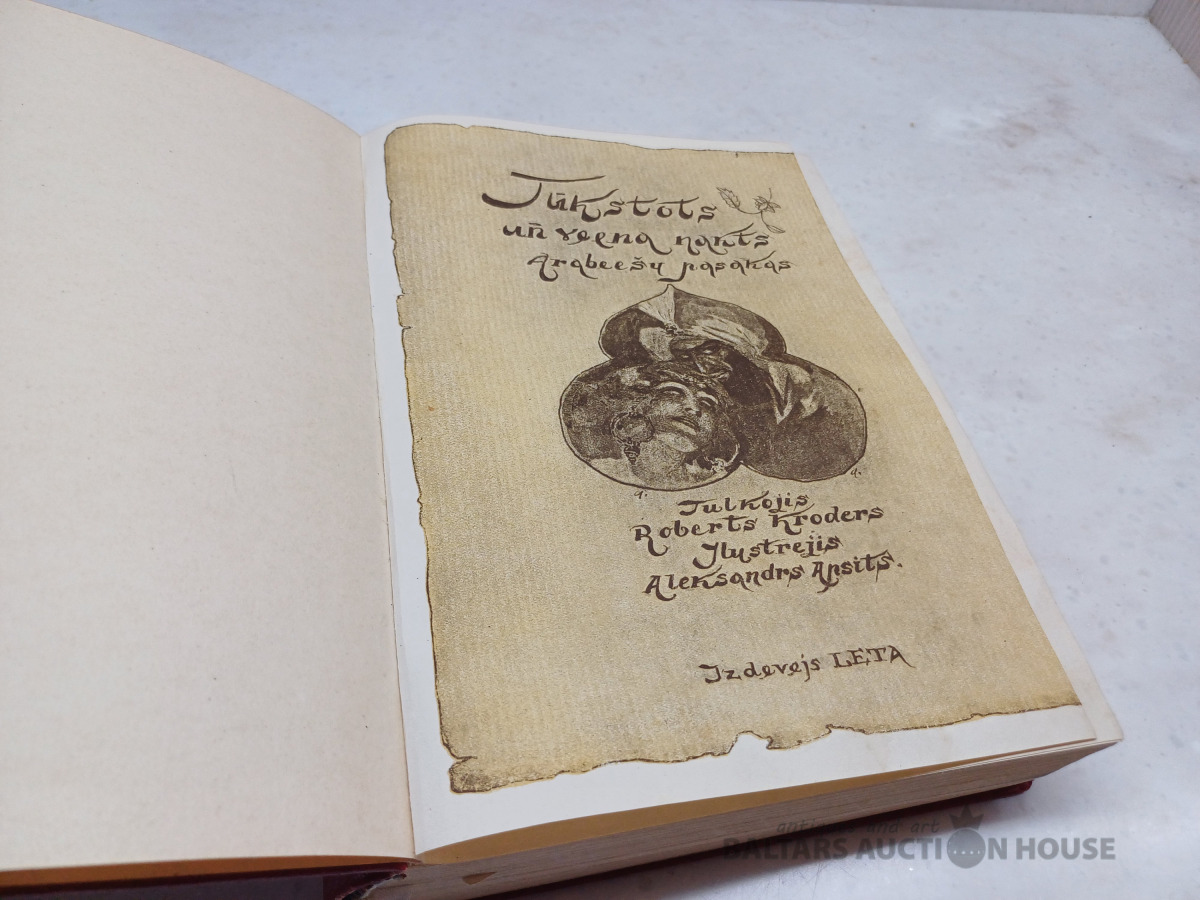 Tūkstots
un̄ veena nakts
Arabeešu pasakas
a.
a.
Tulkojis
Roberts Kroders
Ilustrejis
Aleksandrs Apsits.
Izdevejs LETA
antique and art
BALTARS AUCTION HOUSE